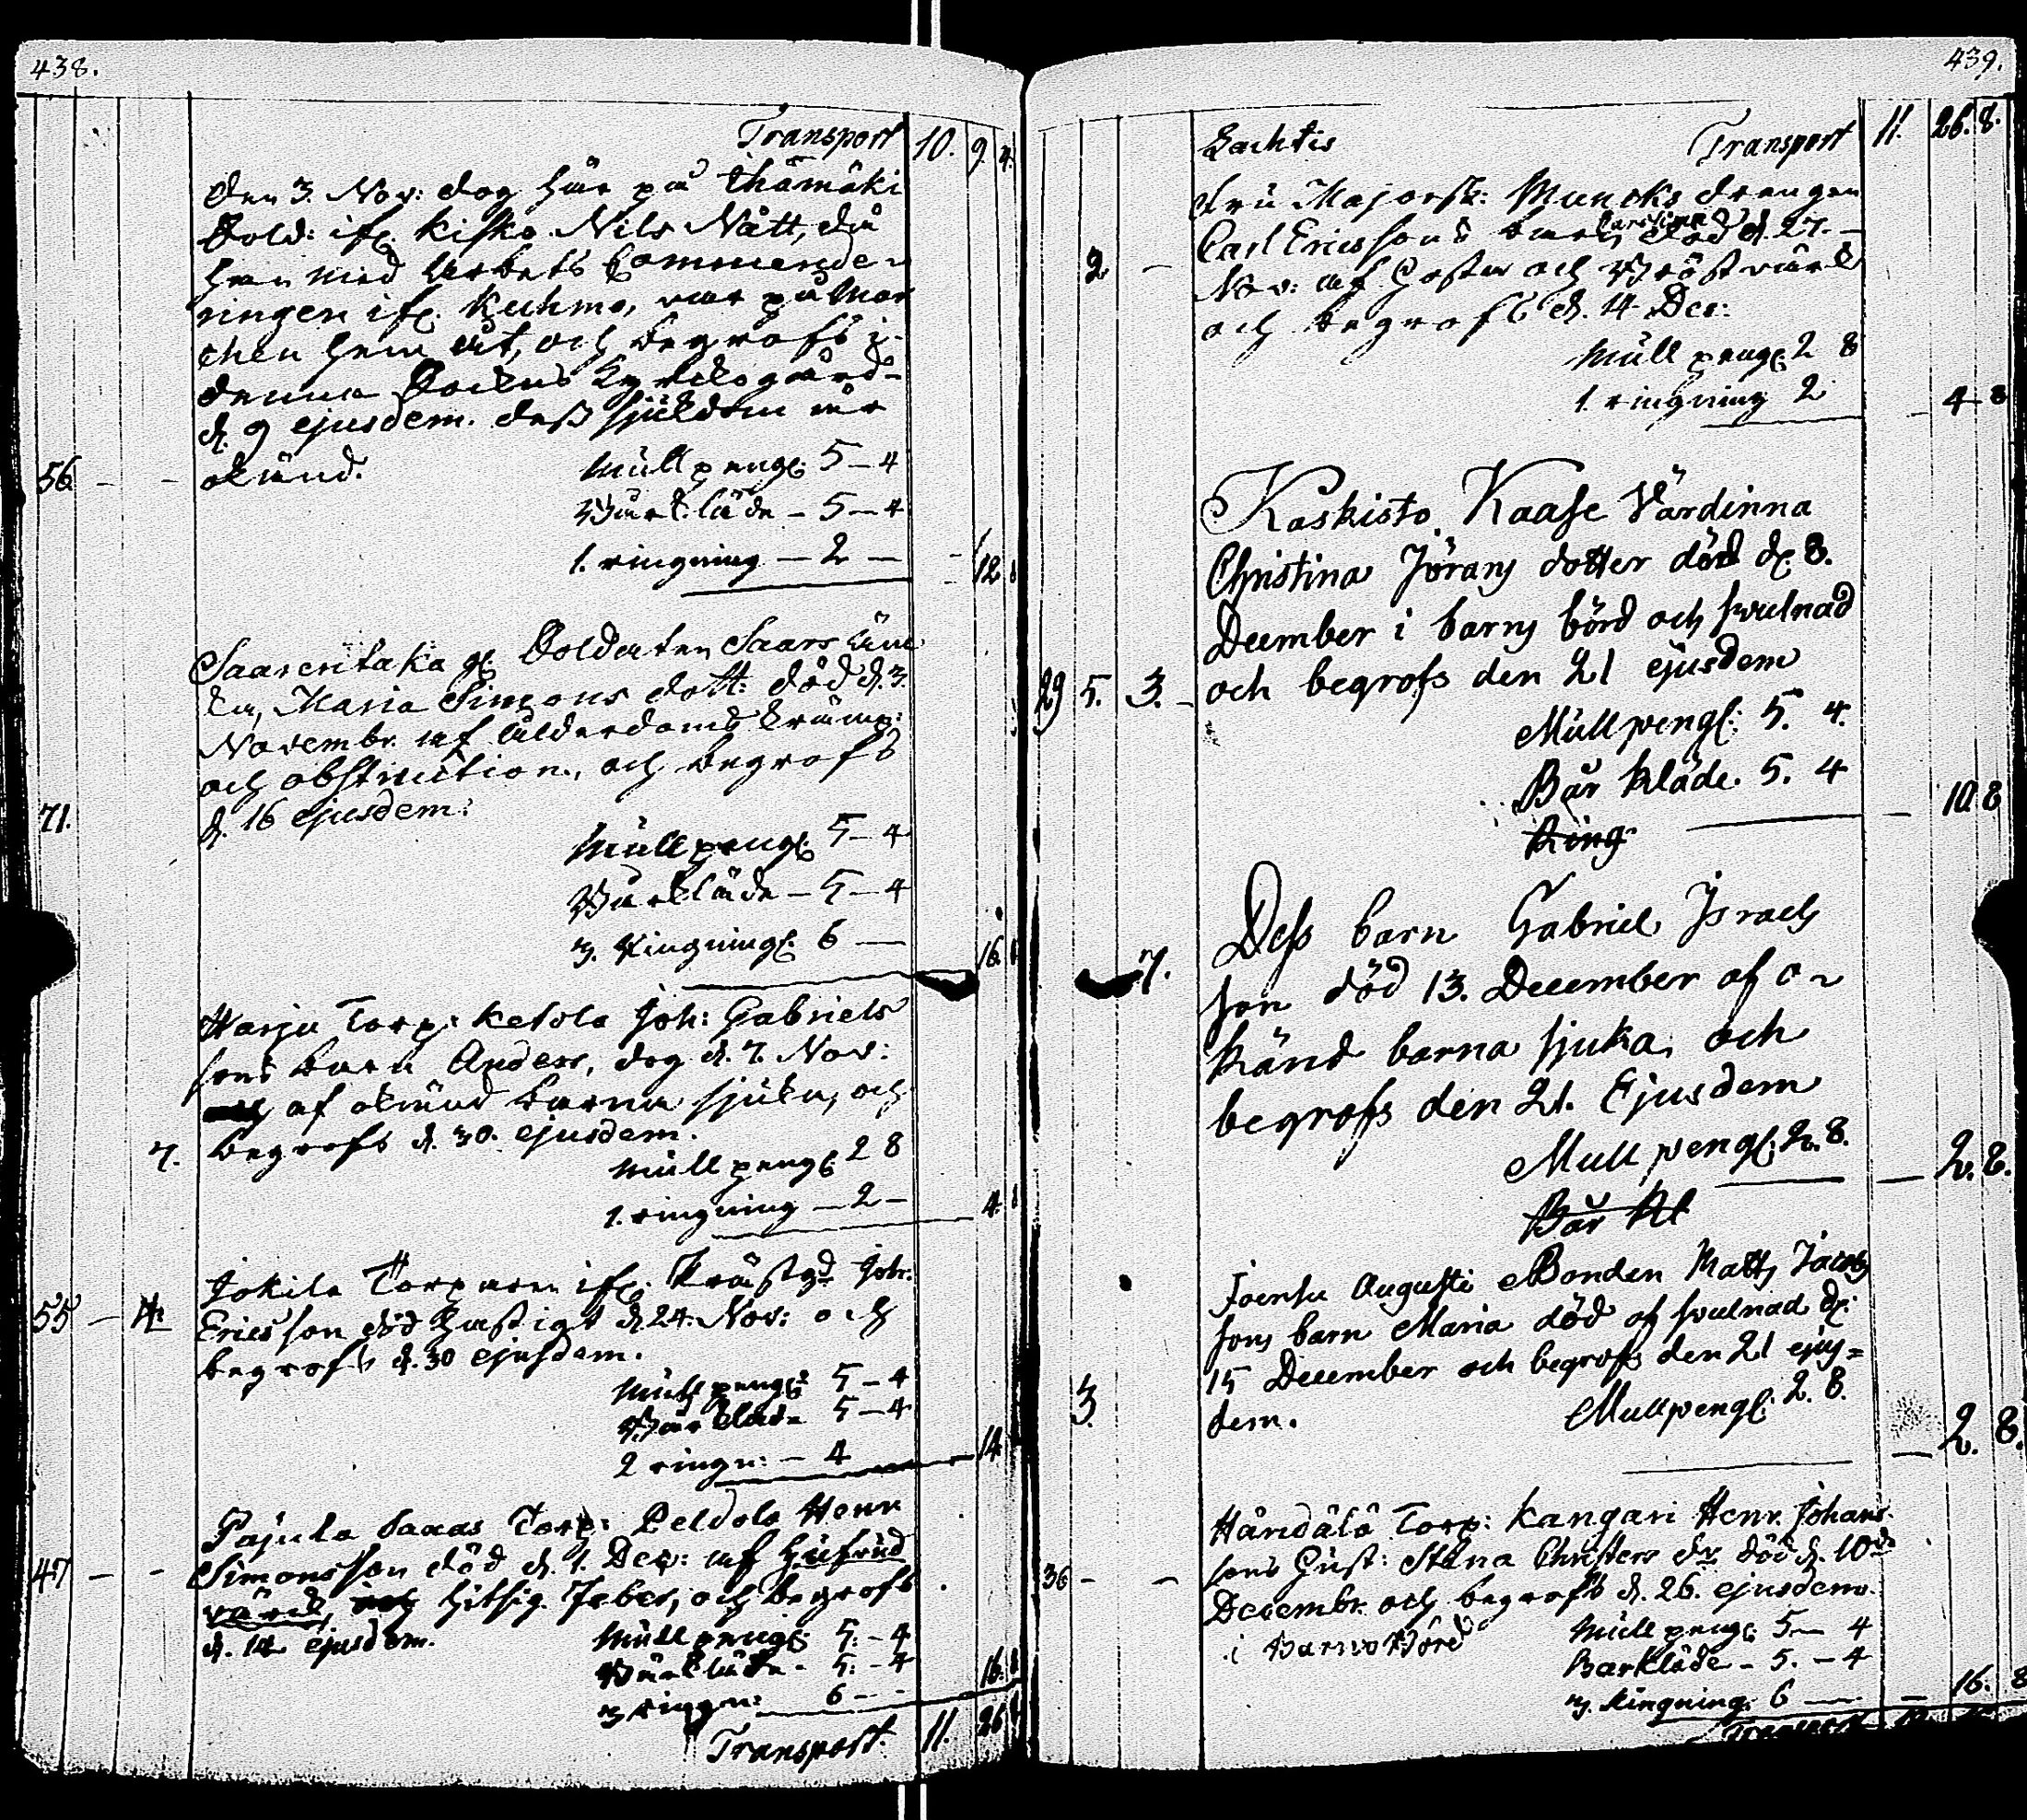 438.
Transport 10. 9. 4.
Den 3. Nov: dog här på Ihämäki
Sold: ifr. Kisko Nils Nått, då
han med Arbets Commende-
ringen ifr. Kuhmo, var på Mar
chen hem åt, och begrofs i
denna Sockns Kyrckogård
d. 9 ejusdem. dess sjukdom var
56 - - okänd. Mull peng: 5-4
Bårkläde - 5-4
1. ringning - 2 - - 12 8
Saarentaka gl. Soldaten Saars
Maria Simons dott: död d. 3.
Novembr. af ålderdoms krämp:
och obstruction, och begrofs
71. d. 16 ejusdem:
Mull peng: 5-4
Bårkläde - 5-4
3. Ringning: 6 - 16.
Harju Torp: Ketola Joh: Gabriels
sons barn Anders, dog d. 7. Nov:
af okänd barna sjuka, och
7. begrofs d. 30. ejusdem.
Mull peng: 2 8
1. ringning - 2 - 4.
Jokila Torparen ifr. Prästgd Joh:
55 - 4 Ericsson död hastigt d. 24. Nov: och
begrofs d. 30 ejusdem.
Mull peng: 5-4
Bårkläde 5-4
2 ringn: - 4 14
Pajula Torp: Peldola Henr
47 - - Simonsson död d. 1. Dec: af hufvud
värck, hitsig feber, och begrofs
d. 14 ejusdem. Mull peng: 5.-4
Bårkläde - 5.-4
3 ringn: 6 - - 16.
Transport 11. 26
439.
Lachtis Transport 11. 26. 8.
Fru Majorsk: Muncks drengen
Carl Ericssons barn död d. 27.
2 - Nov: af Hosta och Bröstvärck
och begrofs d. 14 Dec:
Mull peng: 2 8
1. ringning 2 - 4 8
Kaskisto Kaase Värdinna
Christina Jörans dotter död d. 8.
December i barns börd och svulnad
29 5. 3. - och begrofs den 21 ejusdem
Mullpeng: 5. 4.
Bår kläde. 5. 4 - 10 8
Ring
Dess barn Gabriel Israels
7. son död 13. December af o-
känd barna sjuka, och
begrofs den 21. Ejusdem
Mull peng: 2. 8. - 2. 8.
Bår kl
Joensu Augusti Bonden Matts Jacobs
sons barn Maria död af svulnad d.
15 December och begrofs den 21 ejus=
3. dem. Mullpeng: 2. 8. - 2. 8.
Händälä Torp: Kangari Henr. Johans
36 - - sons Hust: Stina Christers dr död d. 10de
Decembr. och begrofs d. 26. ejusdem.
i Barns Börd Mull peng: 5 - 4
Barkläde - 5. - 4
3. Ringning: 6 - - 16. 8
Transport